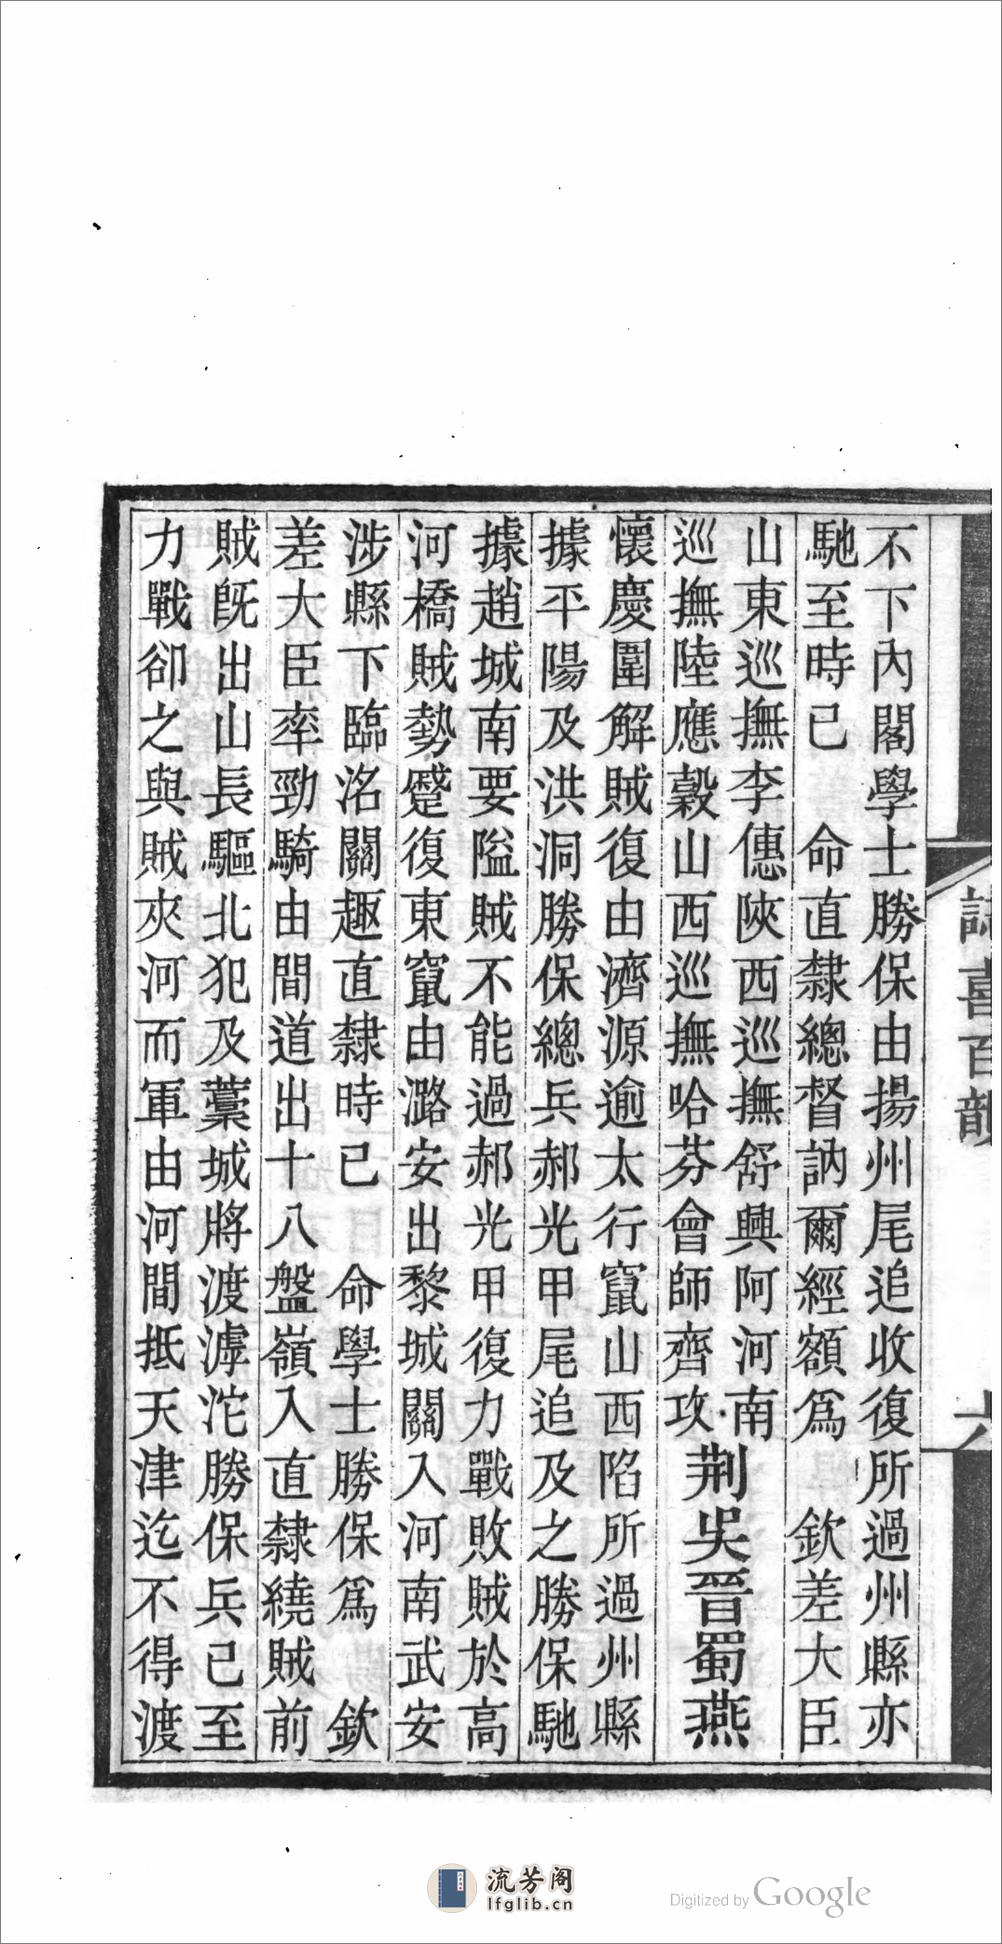 不下內閣學士勝保由揚州尾追收復所過州縣亦
馳至時已　命直隸總督訥爾經額爲　欽差大臣
山東巡撫李僡陝西巡撫舒興阿河南
巡撫陸應穀山西巡撫哈芬會師齊攻
荆吳晉蜀燕
懷慶圍解賊復由濟源逾太行竄山西陷所過州縣
據平陽及洪洞勝保總兵郝光甲尾追及之勝保馳
據趙城南要隘賊不能過郝光甲復力戰敗賊於高
河橋賊勢蹙復東竄由潞安出黎城關入河南武安
涉縣下臨洺關趣直隸時已　命學士勝保爲　欽
差大臣率勁騎由間道出十八盤嶺入直隸繞賊前
賊旣出山長驅北犯及藁城將渡滹沱勝保兵已至
力戰卻之與賊夾河而軍由河間抵天津迄不得渡
喜百韻
六
流芳阁
lfglib.cn
Digitized by Google